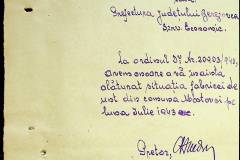 Prefectura Județului Berezovca
Serv. Economic
La ordinul Dv. Nr. 20203/943,
avem onoare a vă înainta
alăturat situația fabricei de
ust din comuna Mostovoi pe
luna Iulie 1943
Pretor,